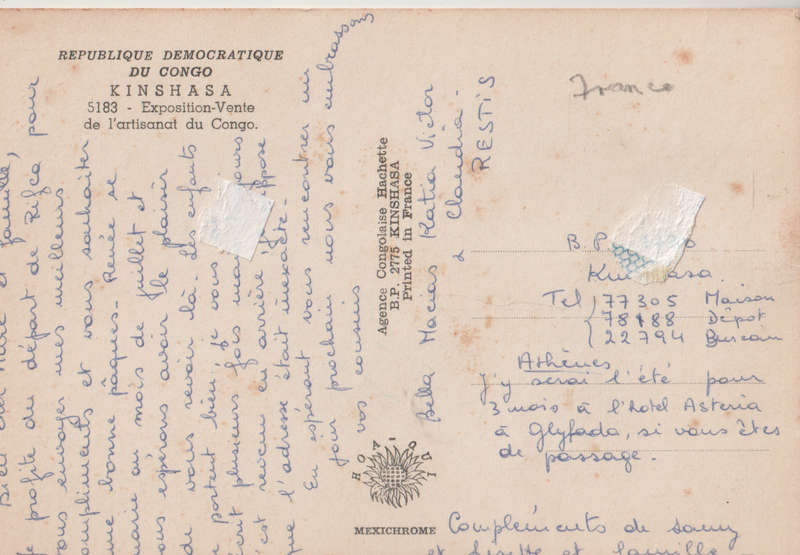 REPUBLIQUE DEMOCRATIQUE
DU CONGO
KINSHASA
5183 - Exposition-Vente
de l'artisanat du Congo.
Bien cher et famille,
profite du départ de pour
vous envoyer mes meilleurs
compliments et vous souhaiter
une bonne pâques - Renée se
marie au mois de juillet et
nous espérons avoir le plaisir
de vous revoir là. Les enfants
se portent bien, je vous
écrit plusieurs fois mais
c'est revenu en arrière
que l'adresse était inexacte -
En espérant vous rencontrer un
jour prochain nous vous embrassons
vos cousins
Agence Congolaise Hachette
B.P. 2775 KINSHASA
Printed in France
Bella Macias Katia Victor
Claudia -
RESTIS
France
B.P.
Kinshasa
Tel 77305 Maison
78188 Dépot
22794 Bureau
Athènes
J'y serai l'été pour
3 mois à l'hotel Asteria
à Glyfada, si vous êtes
de passage.
HOA-QUI
MEXICHROME
Compléments de samy
et et famille